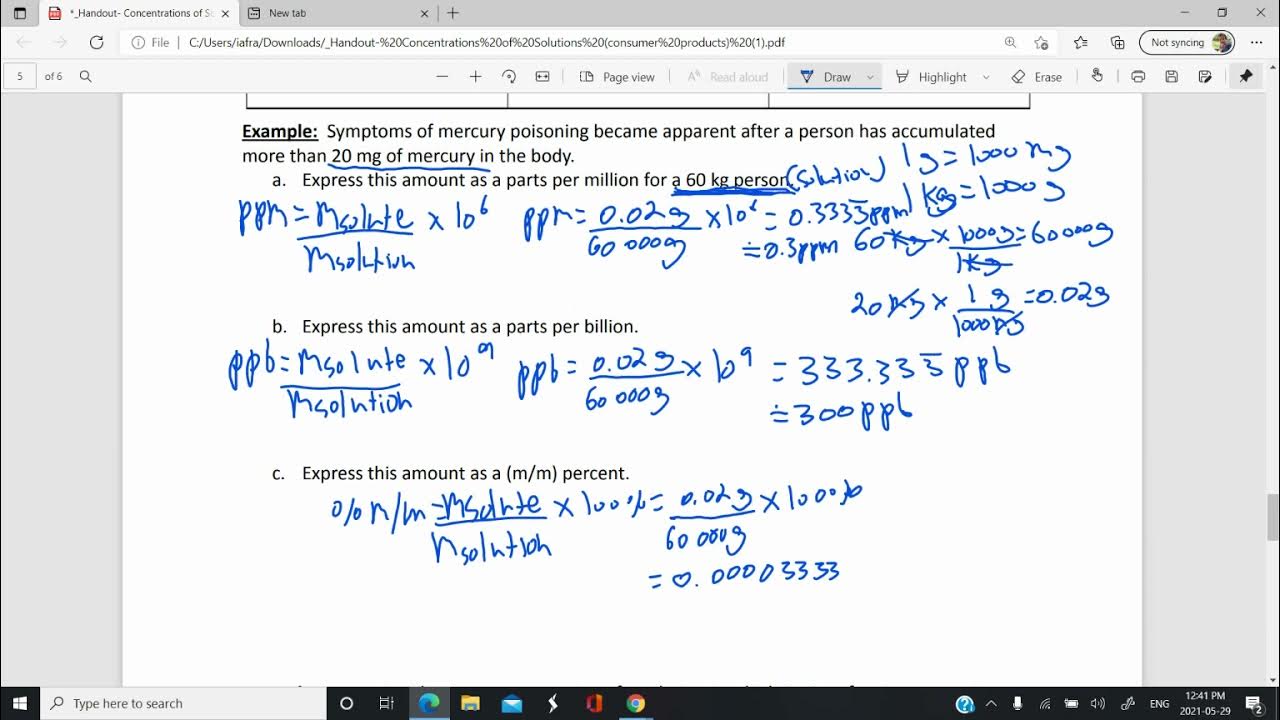 *_Handout- Concentrations of So
New tab
File
C:/Users/iafra/Downloads/_Handout-%20Concentrations%20of%20Solutions%20(consumer%20products)%20(1).pdf
Not syncing
5 of 6
Page view
Read aloud
Draw
Highlight
Erase
Example: Symptoms of mercury poisoning became apparent after a person has accumulated
more than 20 mg of mercury in the body.
a. Express this amount as a parts per million for a 60 kg person (solution)
1g = 1000 mg
1 kg = 1000 g
ppm = msolute / msolution × 10⁶
ppm = 0.02g / 60 000g × 10⁶ = 0.3333̅ ppm
≐ 0.3ppm
60kg × 1000g / 1kg = 60000g
20mg × 1g / 1000mg = 0.02g
b. Express this amount as a parts per billion.
ppb = msolute / msolution × 10⁹
ppb = 0.02g / 60 000g × 10⁹ = 333.333̅ ppb
≐ 300ppb
c. Express this amount as a (m/m) percent.
% m/m = msolute / msolution × 100% = 0.02g / 60 000g × 100%
= 0.00003333
Type here to search
ENG
12:41 PM
2021-05-29
2